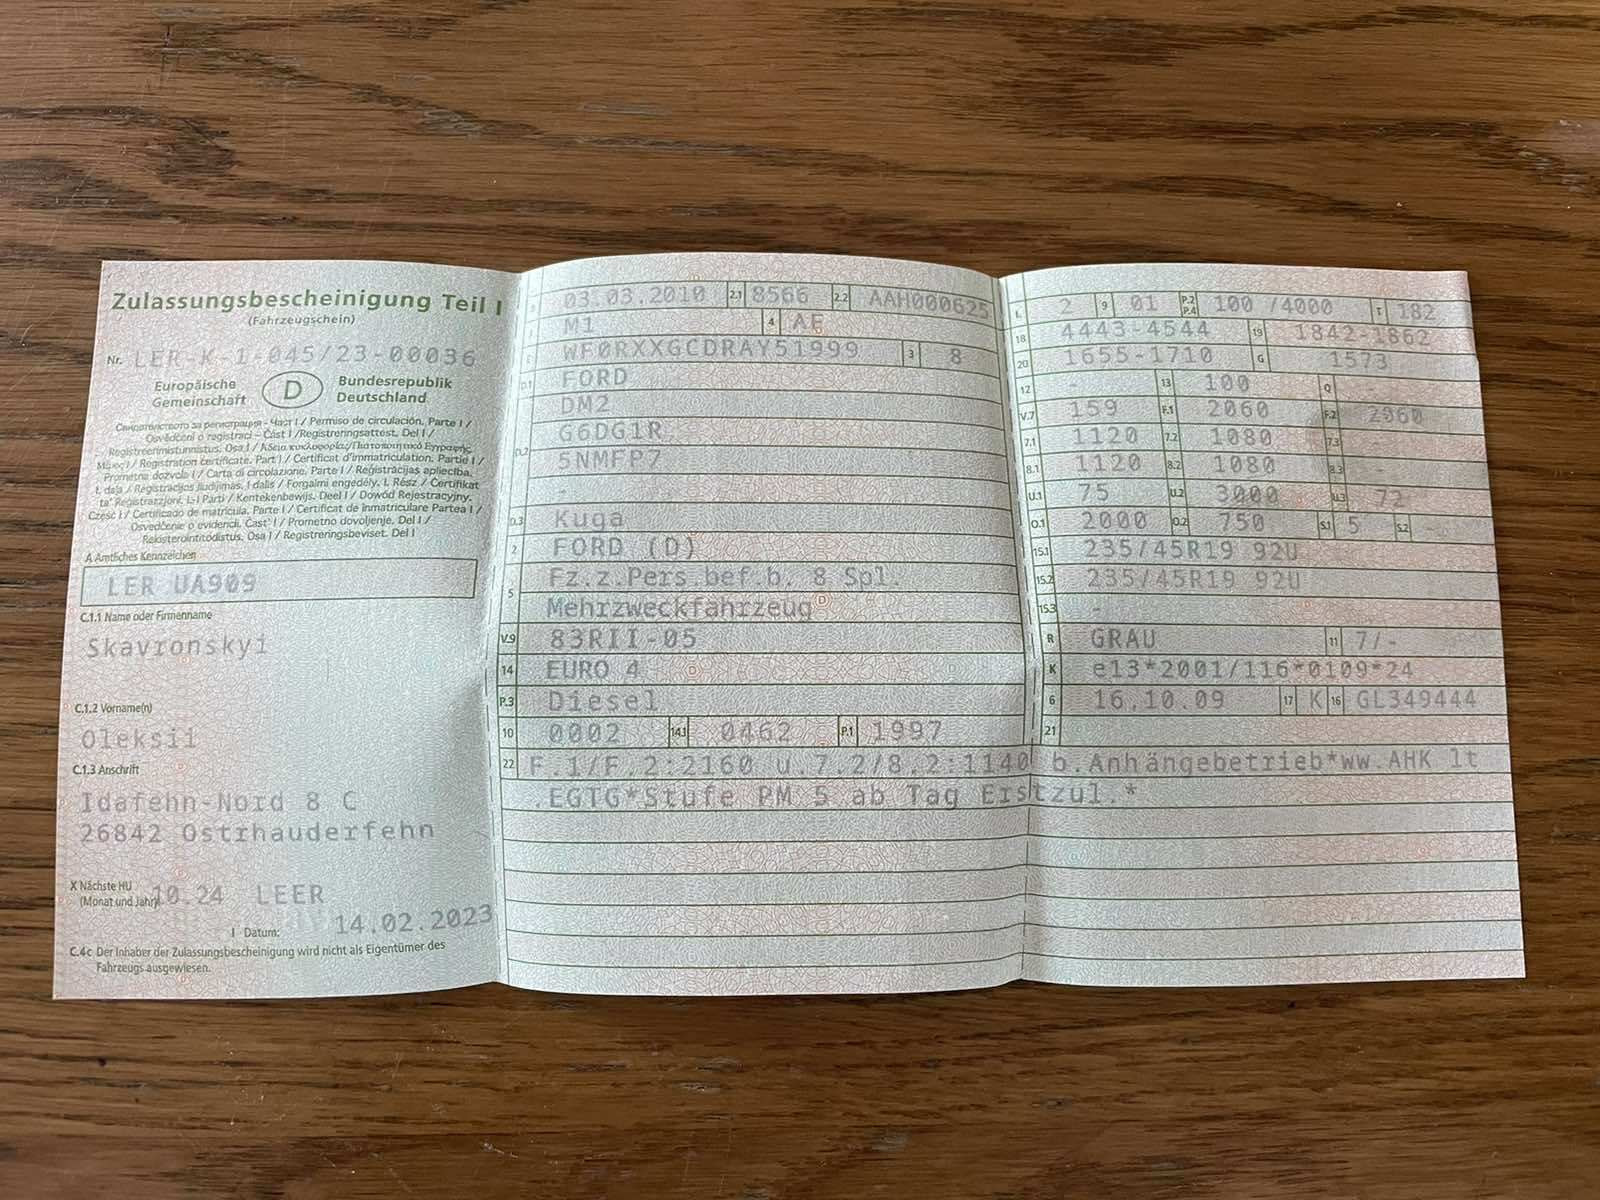 Zulassungsbescheinigung Teil I
(Fahrzeugschein)
Nr. LER-K-1-045/23-00036
Europäische Gemeinschaft
D
Bundesrepublik Deutschland
Свидетелство за регистрация - Част I / Permiso de circulación, Parte I /
Osvědčení o registraci – Část I / Registreringsattest, Del I /
Registreerimistunnistus. Osa I / Άδεια κυκλοφορίας/Πιστοποιητικό Εγγραφής
Μέρος I / Registration certificate. Part I / Certificat d'immatriculation. Partie I /
Prometna dozvola I / Carta di circolazione. Parte I / Reģistrācijas apliecība.
I. daļa / Registracijos liudijimas. I dalis / Forgalmi engedély. I. Rész / Ċertifikat
ta' Reġistrazzjoni. L-I Parti / Kentekenbewijs. Deel I / Dowód Rejestracyjny.
Część I / Certificado de matrícula. Parte I / Certificat de înmatriculare Partea I /
Osvedčenie o evidencii. Časť I / Prometno dovoljenje. Del I /
Rekisteröintitodistus. Osa I / Registreringsbeviset. Del I
A Amtliches Kennzeichen
LER UA909
C.1.1 Name oder Firmenname
Skavronskyi
C.1.2 Vorname(n)
Oleksii
C.1.3 Anschrift
Idafehn-Nord 8 C
26842 Ostrhauderfehn
X Nächste HU
(Monat und Jahr) 10.24 LEER
I Datum: 14.02.2023
C.4c Der Inhaber der Zulassungsbescheinigung wird nicht als Eigentümer des
Fahrzeugs ausgewiesen.
03.03.2010 2.1 8566 2.2 AAH000625
M1 4 AF
E WF0RXXGCDRAY51999 3 8
D.1 FORD
DM2
D.2 G6DG1R
5NMFP7
-
D.3 Kuga
2 FORD (D)
5 Fz.z.Pers.bef.b. 8 Spl.
Mehrzweckfahrzeug
V.9 83RII-05
14 EURO 4
P.3 Diesel
10 0002 14.1 0462 P.1 1997
L 2 9 01 P.2 P.4 100 /4000 T 182
18 4443-4544 19 1842-1862
20 1655-1710 G 1573
12 - 13 100 Q
V.7 159 F.1 2060 F.2 2060
7.1 1120 7.2 1080 7.3
8.1 1120 8.2 1080 8.3
U.1 75 U.2 3000 U.3 72
O.1 2000 O.2 750 S.1 5 S.2 -
15.1 235/45R19 92U
15.2 235/45R19 92U
15.3 -
R GRAU 11 7/-
K e13*2001/116*0109*24
6 16.10.09 17 K 16 GL349444
21
22 F.1/F.2:2160 u.7.2/8.2:1140 b.Anhängebetrieb*ww.AHK lt
.EGTG*Stufe PM 5 ab Tag Erstzul.*